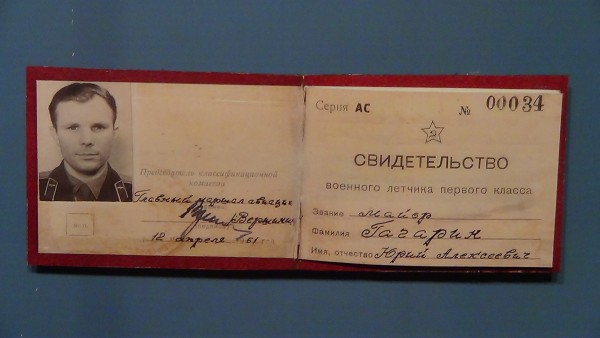 Председатель квалификационной
комиссии
Главный маршал авиации
Вершинин
12 апреля 61 г.
М. П.
Серия АС № 00034
СВИДЕТЕЛЬСТВО
военного летчика первого класса
Звание Майор
Фамилия Гагарин
Имя, отчество Юрий Алексеевич